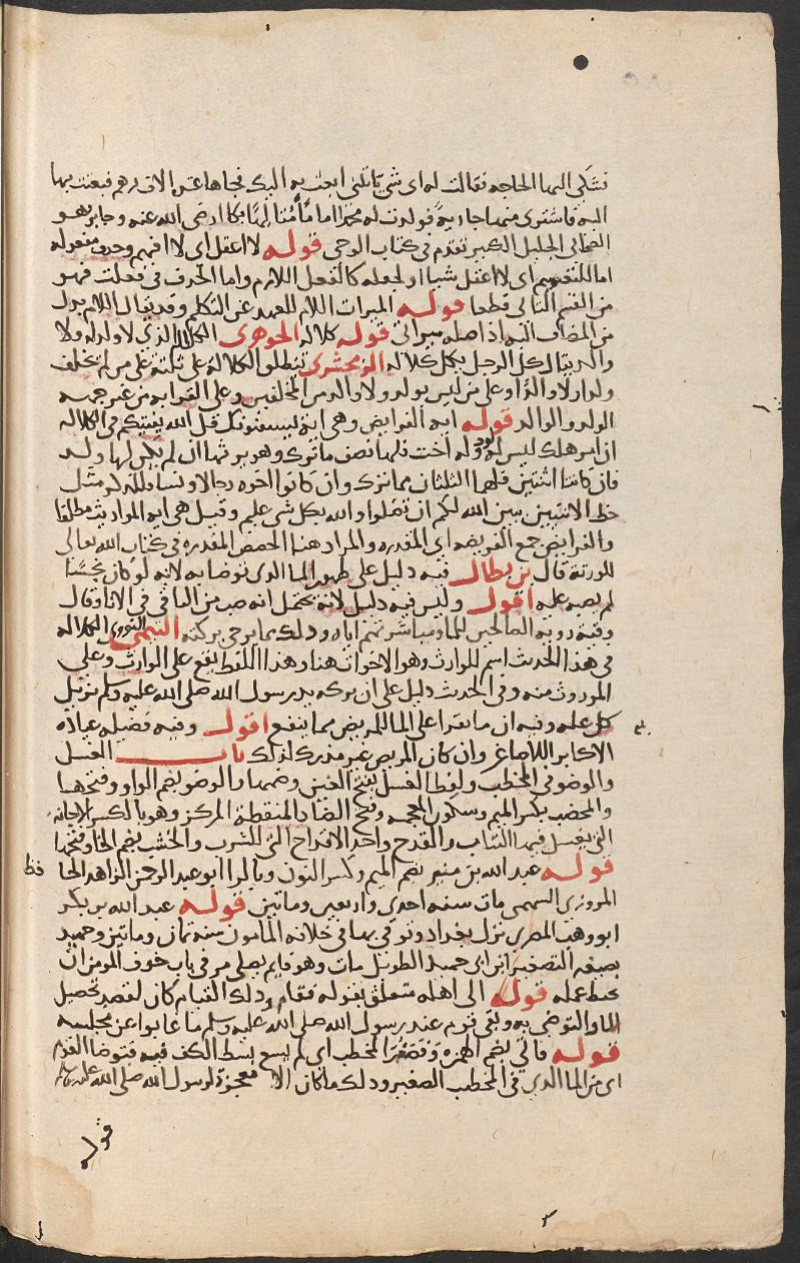 فشكى اليها الحاجه فقالت له اى شى ياتينى ابعث به اليك فجاها عشرة الاف درهم فبعثت بها
اليه فاشترى منها جارية فولدت له محمدا اما منا بكا رضى الله عنه وجابر هو
الصحابى الجليل الكبير تقدم فى كتاب الوحى قوله لا اعقل اى لا افهم وحذف مفعوله
اما للتعميم اى لا اعقل شيا او لجعله كالفعل اللازم واما الحذف فى فعقلت فهو
من القسم الثانى قطعا قوله الميراث اللام للعهد عن المتكلم وقد يقال اللام بدل
من المضاف اليه اذ اصله ميراثى قوله كلاله الجوهرى الكل الذي لا ولد له ولا
والد يقال كل الرجل يكل كلاله الزمخشرى تنطلق الكلالة على ثلثة على من لم يخلف
ولدا ولا والدا وعلى من ليس بولد ولا والد من المخلفين وعلى القرابه من غير جهه
الولد والوالد قوله ايه الفرايض وهى ايه يستفتونك قل الله يفتيكم فى الكلاله
ان امرء هلك ليس له ولد وله اخت فلها نصف ما ترك وهو يرثها ان لم يكن لها ولد
فان كانتا اثنتين فلهما الثلثان مما ترك وان كانوا اخوه رجالا ونساء فللذكر مثل
حظ الانثيين يبين الله لكم ان تضلوا والله بكل شى عليم وقيل هى ايه المواريث مطلقا
والفرايض جمع الفريضه اى المقدره والمراد هنا الحصص المقدره فى كتاب الله تعالى
للورثة قال بن بطال فيه دليل على طهور الما الذى توضا به لانه لو كان نجسا
لم يصبه عليه اقول وليس فيه دليل لانه يحتمل انه صب من الباقى فى الانا وقال
وفيه رقيه الصالحين للما ومباشرتهم اياه وذلك مما يرجى بركته التيمى النووى الكلاله
فى هذا الحديث اسم للوارث وهو الاخوات هنا وهذا اللفظ يقع على الوارث وعلى
الموروث منه وفى الحديث دليل على ان بركه يد رسول الله صلى الله عليه وسلم تزيل
كل عله وفيه ان ما يقرا على الما للمريض مما ينفع اقول وفيه فضيله عياده
الاكابر الاصاغر وان كان المريض غير مدرك لذلك باب الغسل
والوضو فى المخضب ولفظ الغسل بفتح الغين وضمها والوضو بضم الواو وفتحها
والمخضب بكسر الميم وسكون المعجمه وفتح الضاد المنقطة المركز وهو بالكسر الاجانه
التى يغسل فيها الثياب والقدح واحد الاقداح التى للشرب والخشب بضم الخا وفتحها
قوله عبد الله بن منير بضم الميم وكسر النون وبالرا ابو عبد الرحمن الزاهد الحا
فظ
المروزى السهمى مات سنه احدى واربعين وماتين قوله عبد الله بن بكر
ابو وهب المصرى نزل بغداد وتوفى بها فى خلافه المامون سنه ثمان وماتين وحميد
بصيغه التصغير ابن ابى حميد الطويل مات وهو قايم يصلى مر فى باب خوف المومن ان
يحبط عمله قوله الى اهله متعلق بقوله فقام وذلك القيام كان لقصد تحصيل
الما والتوضى به وبقى قوم عند رسول الله صلى الله عليه وسلم ما غابوا عن مجلسه
قوله فاتى بضم الهمزه وفصغر المخضب اى لم يسع بسط الكف فيه فتوضا القوم
اى من الما الذى فى المخضب الصغير وذلك ما كان الا معجزة لرسول الله صلى الله عليه وسلم
قوله